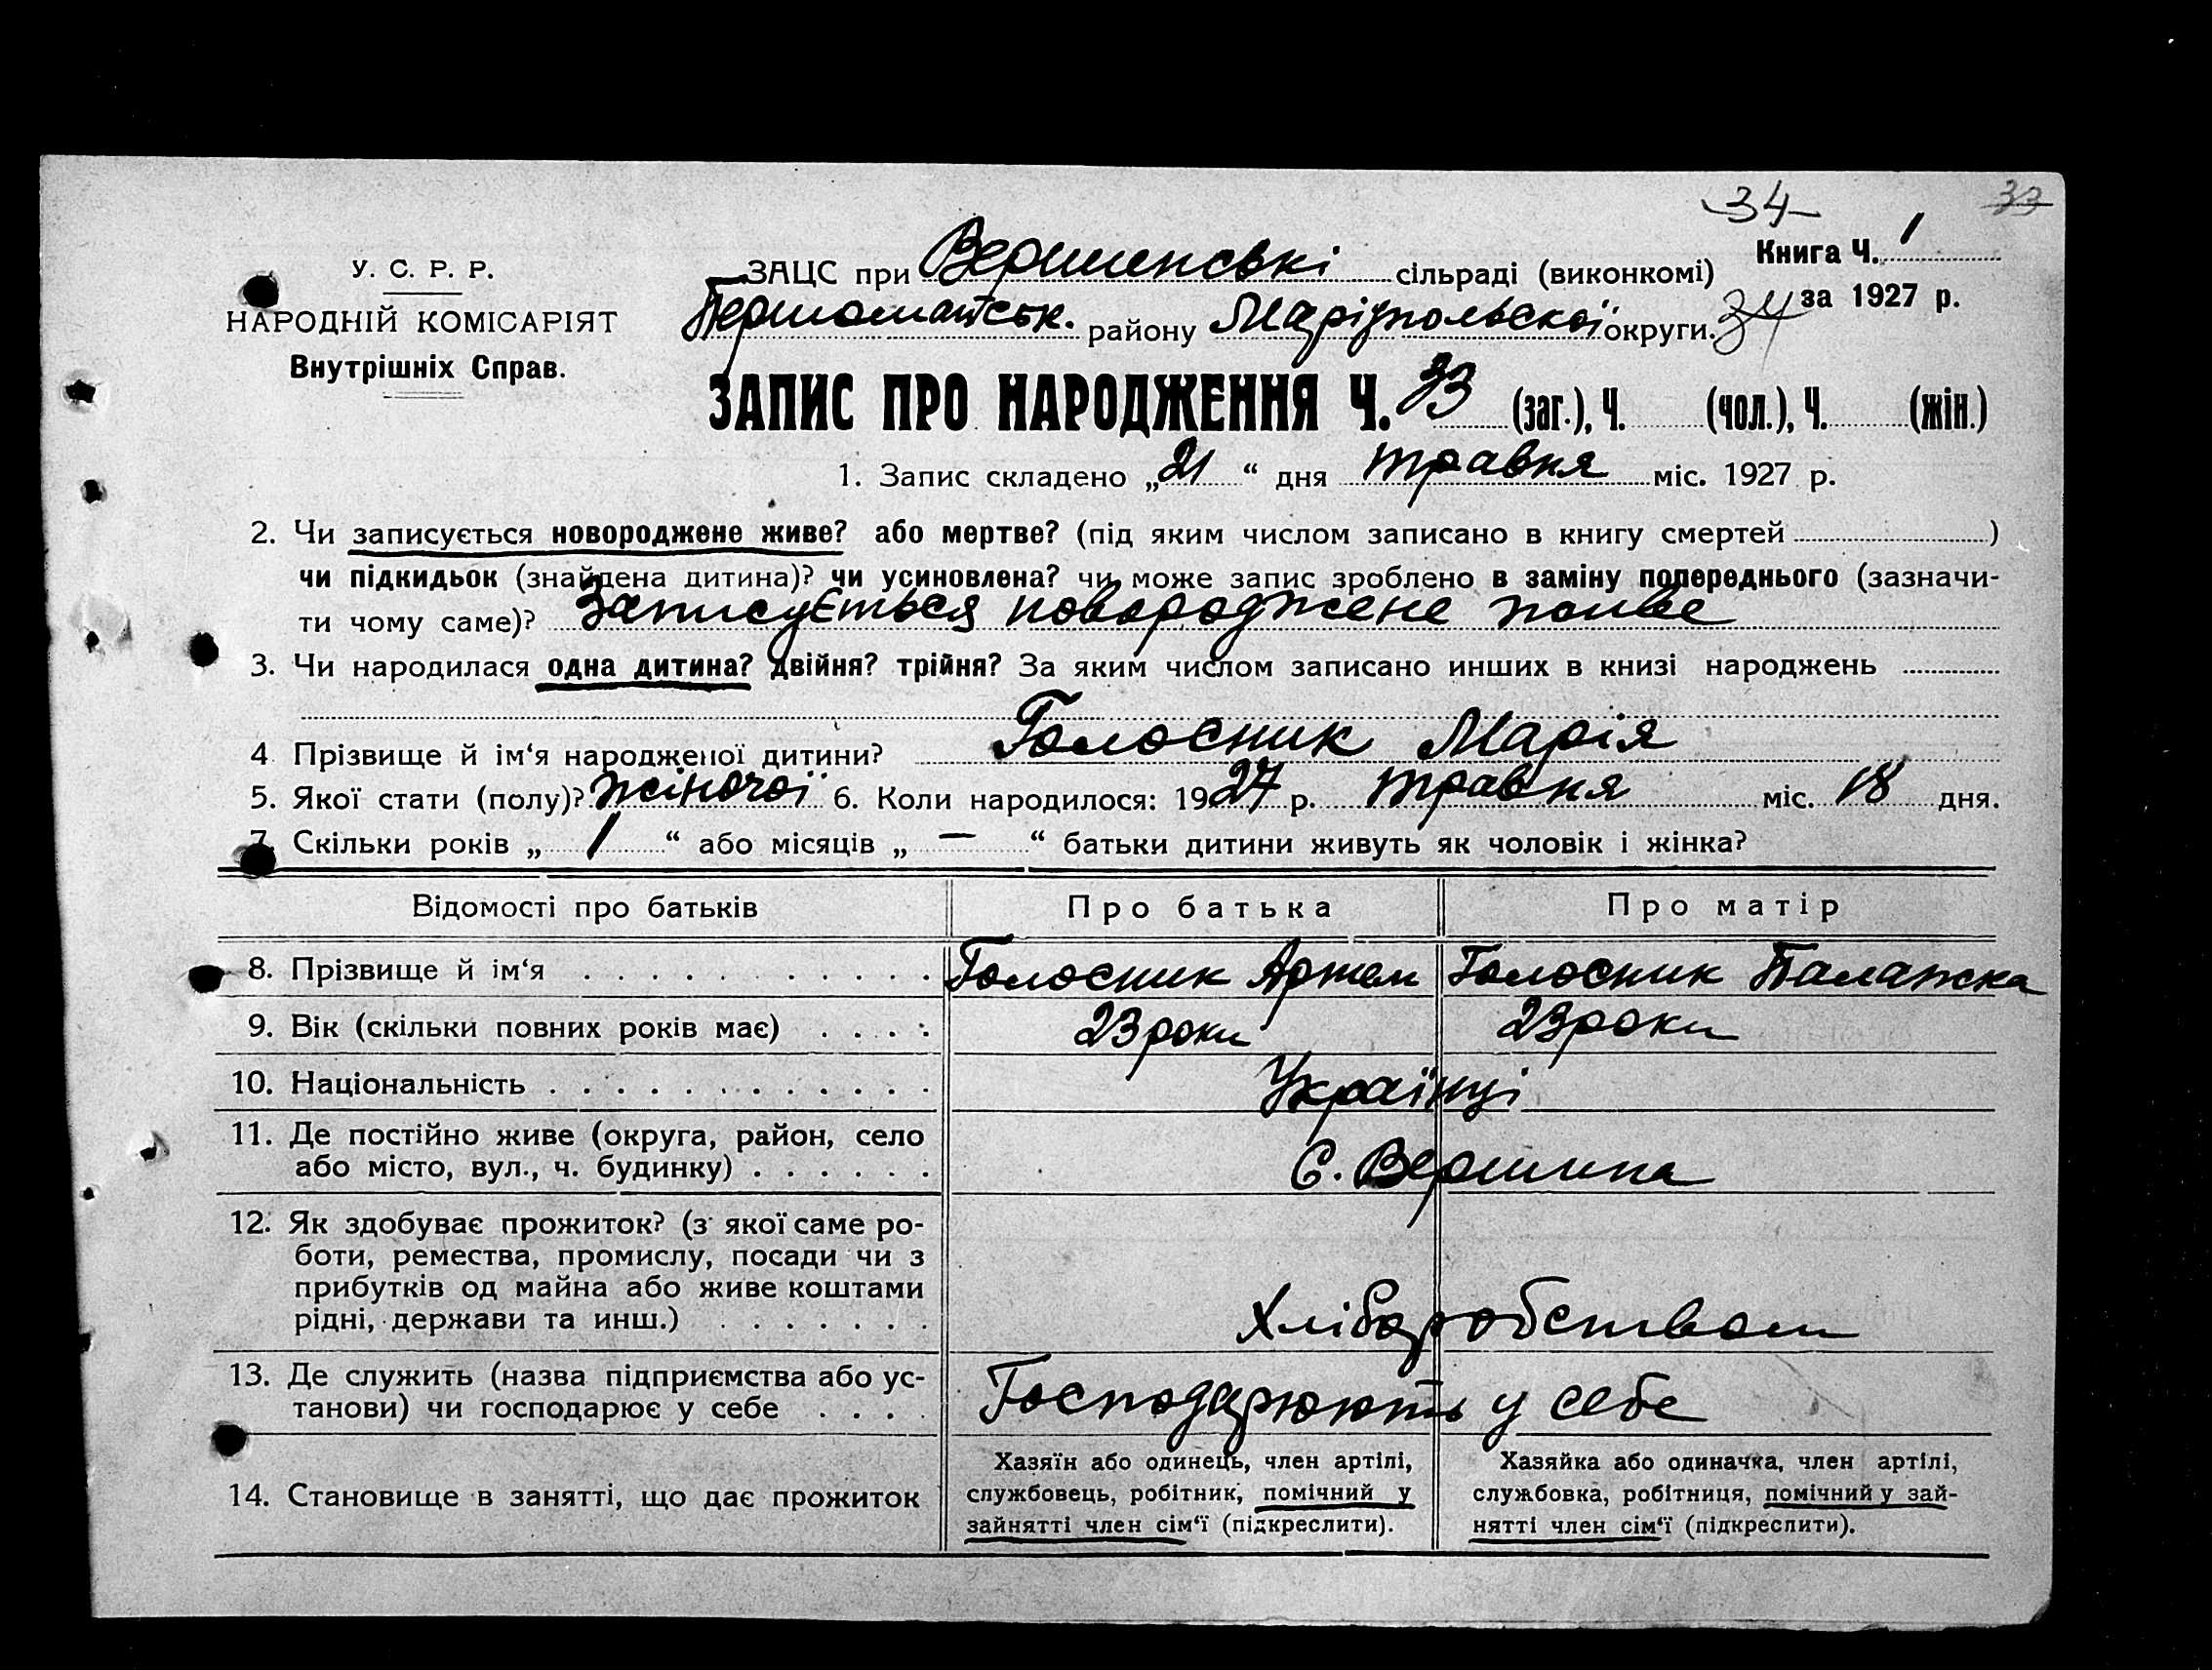 34 33
У. С. Р. Р.
НАРОДНІЙ КОМІСАРІЯТ
Внутрішніх Справ.
Книга Ч. 1
за 1927 р.
ЗАЦС при Вершинські сільраді (виконкомі)
Першомайськ. району Маріупольської округи. 34
ЗАПИС ПРО НАРОДЖЕННЯ Ч. 33 (заг.), Ч. (чол.), Ч. (жін.)
1. Запис складено „21“ дня травня міс. 1927 р.
2. Чи записується новороджене живе? або мертве? (під яким числом записано в книгу смертей )
чи підкидьок (знайдена дитина)? чи усиновлена? чи може запис зроблено в заміну попереднього (зазначи-
ти чому саме)? Записується новороджене живе
3. Чи народилася одна дитина? двійня? трійня? За яким числом записано инших в книзі народжень
4 Прізвище й ім‘я народженої дитини? Голосник Марія
5. Якої стати (полу)? жіночої 6. Коли народилося: 1927 р. травня міс. 18 дня.
7. Скільки років „ 1 “ або місяців „ — “ батьки дитини живуть як чоловік і жінка?
Відомості про батьків Про батька Про матір
8. Прізвище й ім‘я Голосник Артем Голосник Палажка
9. Вік (скільки повних років має) 23 роки 23 роки
10. Національність Українці
11. Де постійно живе (округа, район, село
або місто, вул., ч. будинку) С. Вершина
12. Як здобуває прожиток? (з якої саме ро-
боти, ремества, промислу, посади чи з
прибутків од майна або живе коштами
рідні, держави та инш.) Хліборобством
13. Де служить (назва підприємства або ус-
танови) чи господарює у себе Господарюють у себе
14. Становище в занятті, що дає прожиток
Хазяїн або одинець, член артілі,
службовець, робітник, помічний у
зайнятті член сім‘ї (підкреслити).
Хазяйка або одиначка, член артілі,
службовка, робітниця, помічний у зай-
нятті член сім‘ї (підкреслити).